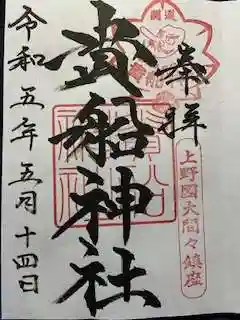 奉拝
上野国大間々鎮座
貴船神社
令和五年五月十四日